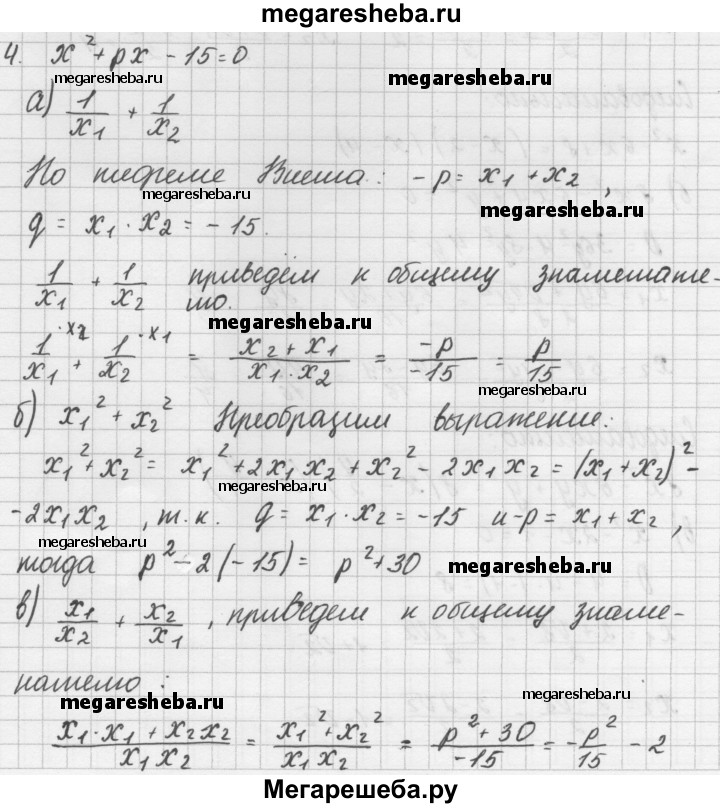 megaresheba.ru
4. x² + px - 15 = 0
megaresheba.ru megaresheba.ru
а) 1/x₁ + 1/x₂
По теореме Виета: -p = x₁ + x₂ ,
megaresheba.ru megaresheba.ru
q = x₁ · x₂ = - 15.
1/x₁ + 1/x₂ приведём к общему знаменате-
лю.
megaresheba.ru
1/x₁ ·x₂ + 1/x₂ ·x₁ = (x₂ + x₁)/(x₁ · x₂) = -p/-15 = p/15
megaresheba.ru
б) x₁² + x₂² Преобразим выражение:
x₁² + x₂² = x₁² + 2x₁x₂ + x₂² - 2x₁x₂ = (x₁ + x₂)² -
megaresheba.ru
-2x₁x₂ , т.к. q = x₁ · x₂ = -15 и -p = x₁ + x₂ ,
megaresheba.ru
тогда p² - 2(-15) = p² + 30
megaresheba.ru
в) x₁/x₂ + x₂/x₁ , приведем к общему знаме-
megaresheba.ru
нателю :
megaresheba.ru megaresheba.ru
(x₁·x₁ + x₂x₂)/(x₁x₂) = (x₁² + x₂²)/(x₁x₂) = (p² + 30)/-15 = -p²/15 - 2
Мегарешеба.ру